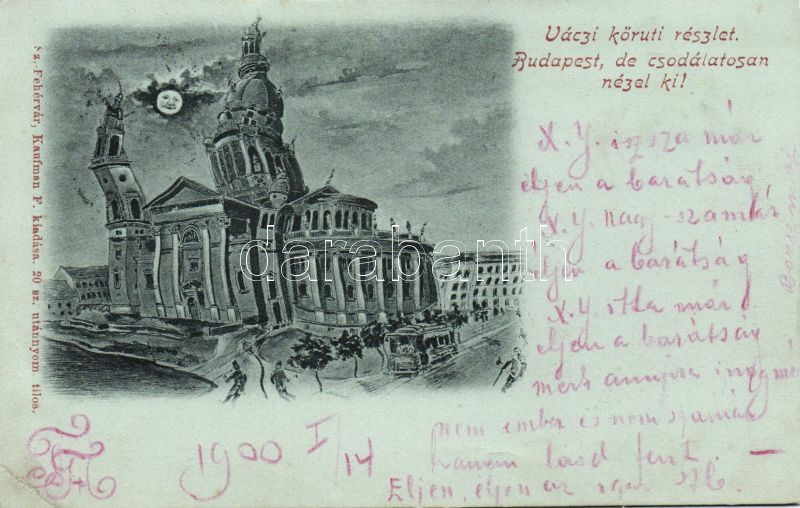 Váczi köruti részlet.
Budapest, de csodálatosan
nézel ki!
Sz.-Fehérvár, Kaufman F. kiadása. 20 sz. utánnyom tilos.
X. Y. iszsza már
éljen a barátság
X. Y. nagy szamár
éljen a barátság
X. Y. itta már
éljen a barátság
mert annyira
nem ember és nem szamár
hanem lásd fent. —
Éljen, éljen az igaz
1900 I/14
darabanth